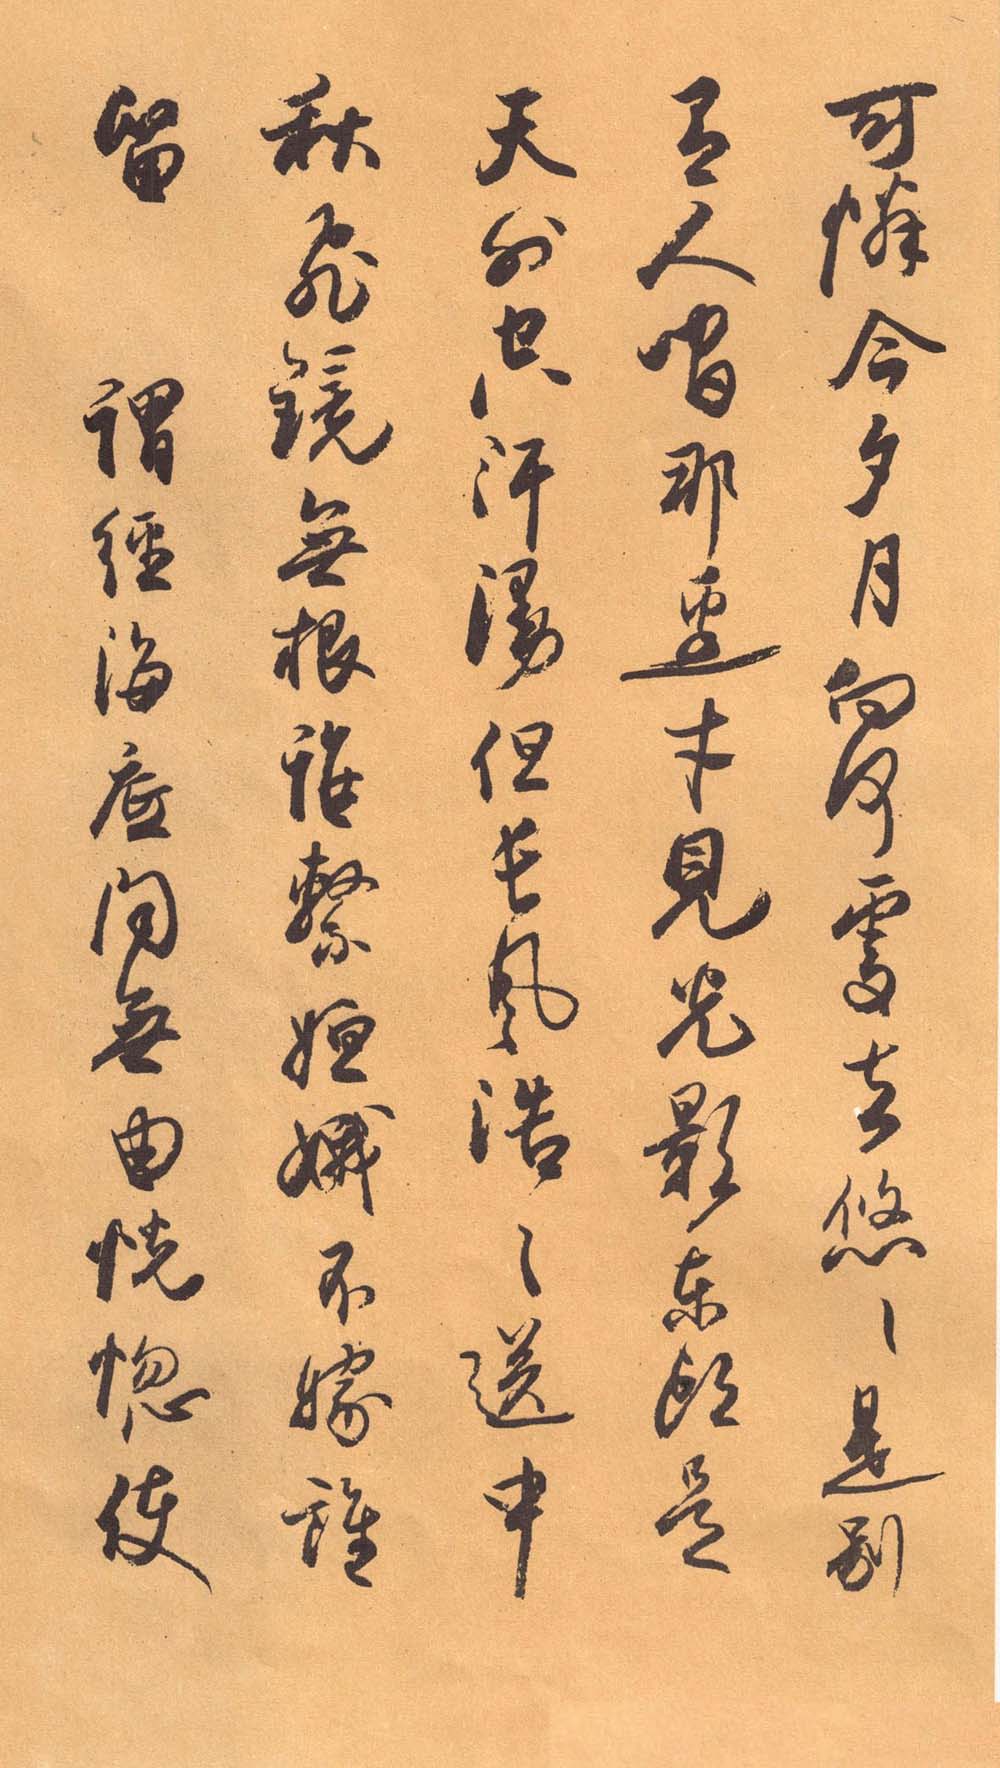 可憐今夕月向何處去悠〻是别
有人間那邊才見光影東頭是
天外空汗漫但長風浩〻送中
秋飛鏡無根誰繫姮娥不嫁誰
留 謂經海底問無由恍惚使